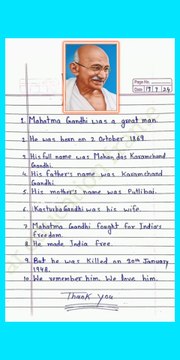 Page No.
Date 19 9 24
1. Mahatma Gandhi was a great man.
2. He was born on 2 October 1869
3. His full name was Mohan das Karamchand
Gandhi.
4. His father's name was Karamchand
Gandhi
5. His mother's name was Putlibai.
6. Kasturba Gandhi was his wife.
7. Mahatma Gandhi fought for India's
freedom.
8. He made India free.
9. But he was killed on 30th January
1948.
10. We remember him. We love him.
Thank you